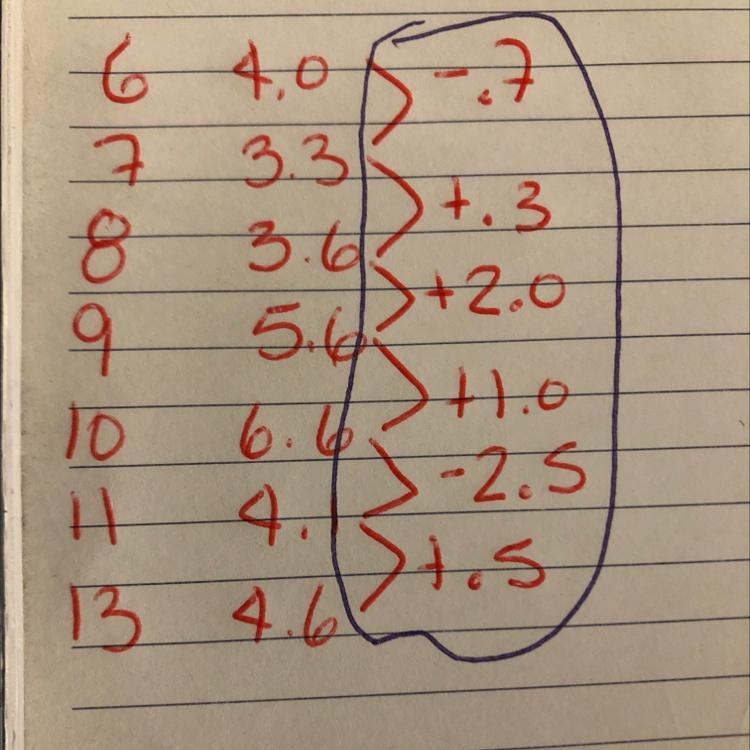 6 4.0 -.7
7 3.3
8 3.6 +.3
9 5.6 +2.0
10 6.6 +1.0
11 4.1 -2.5
13 4.6 +.5